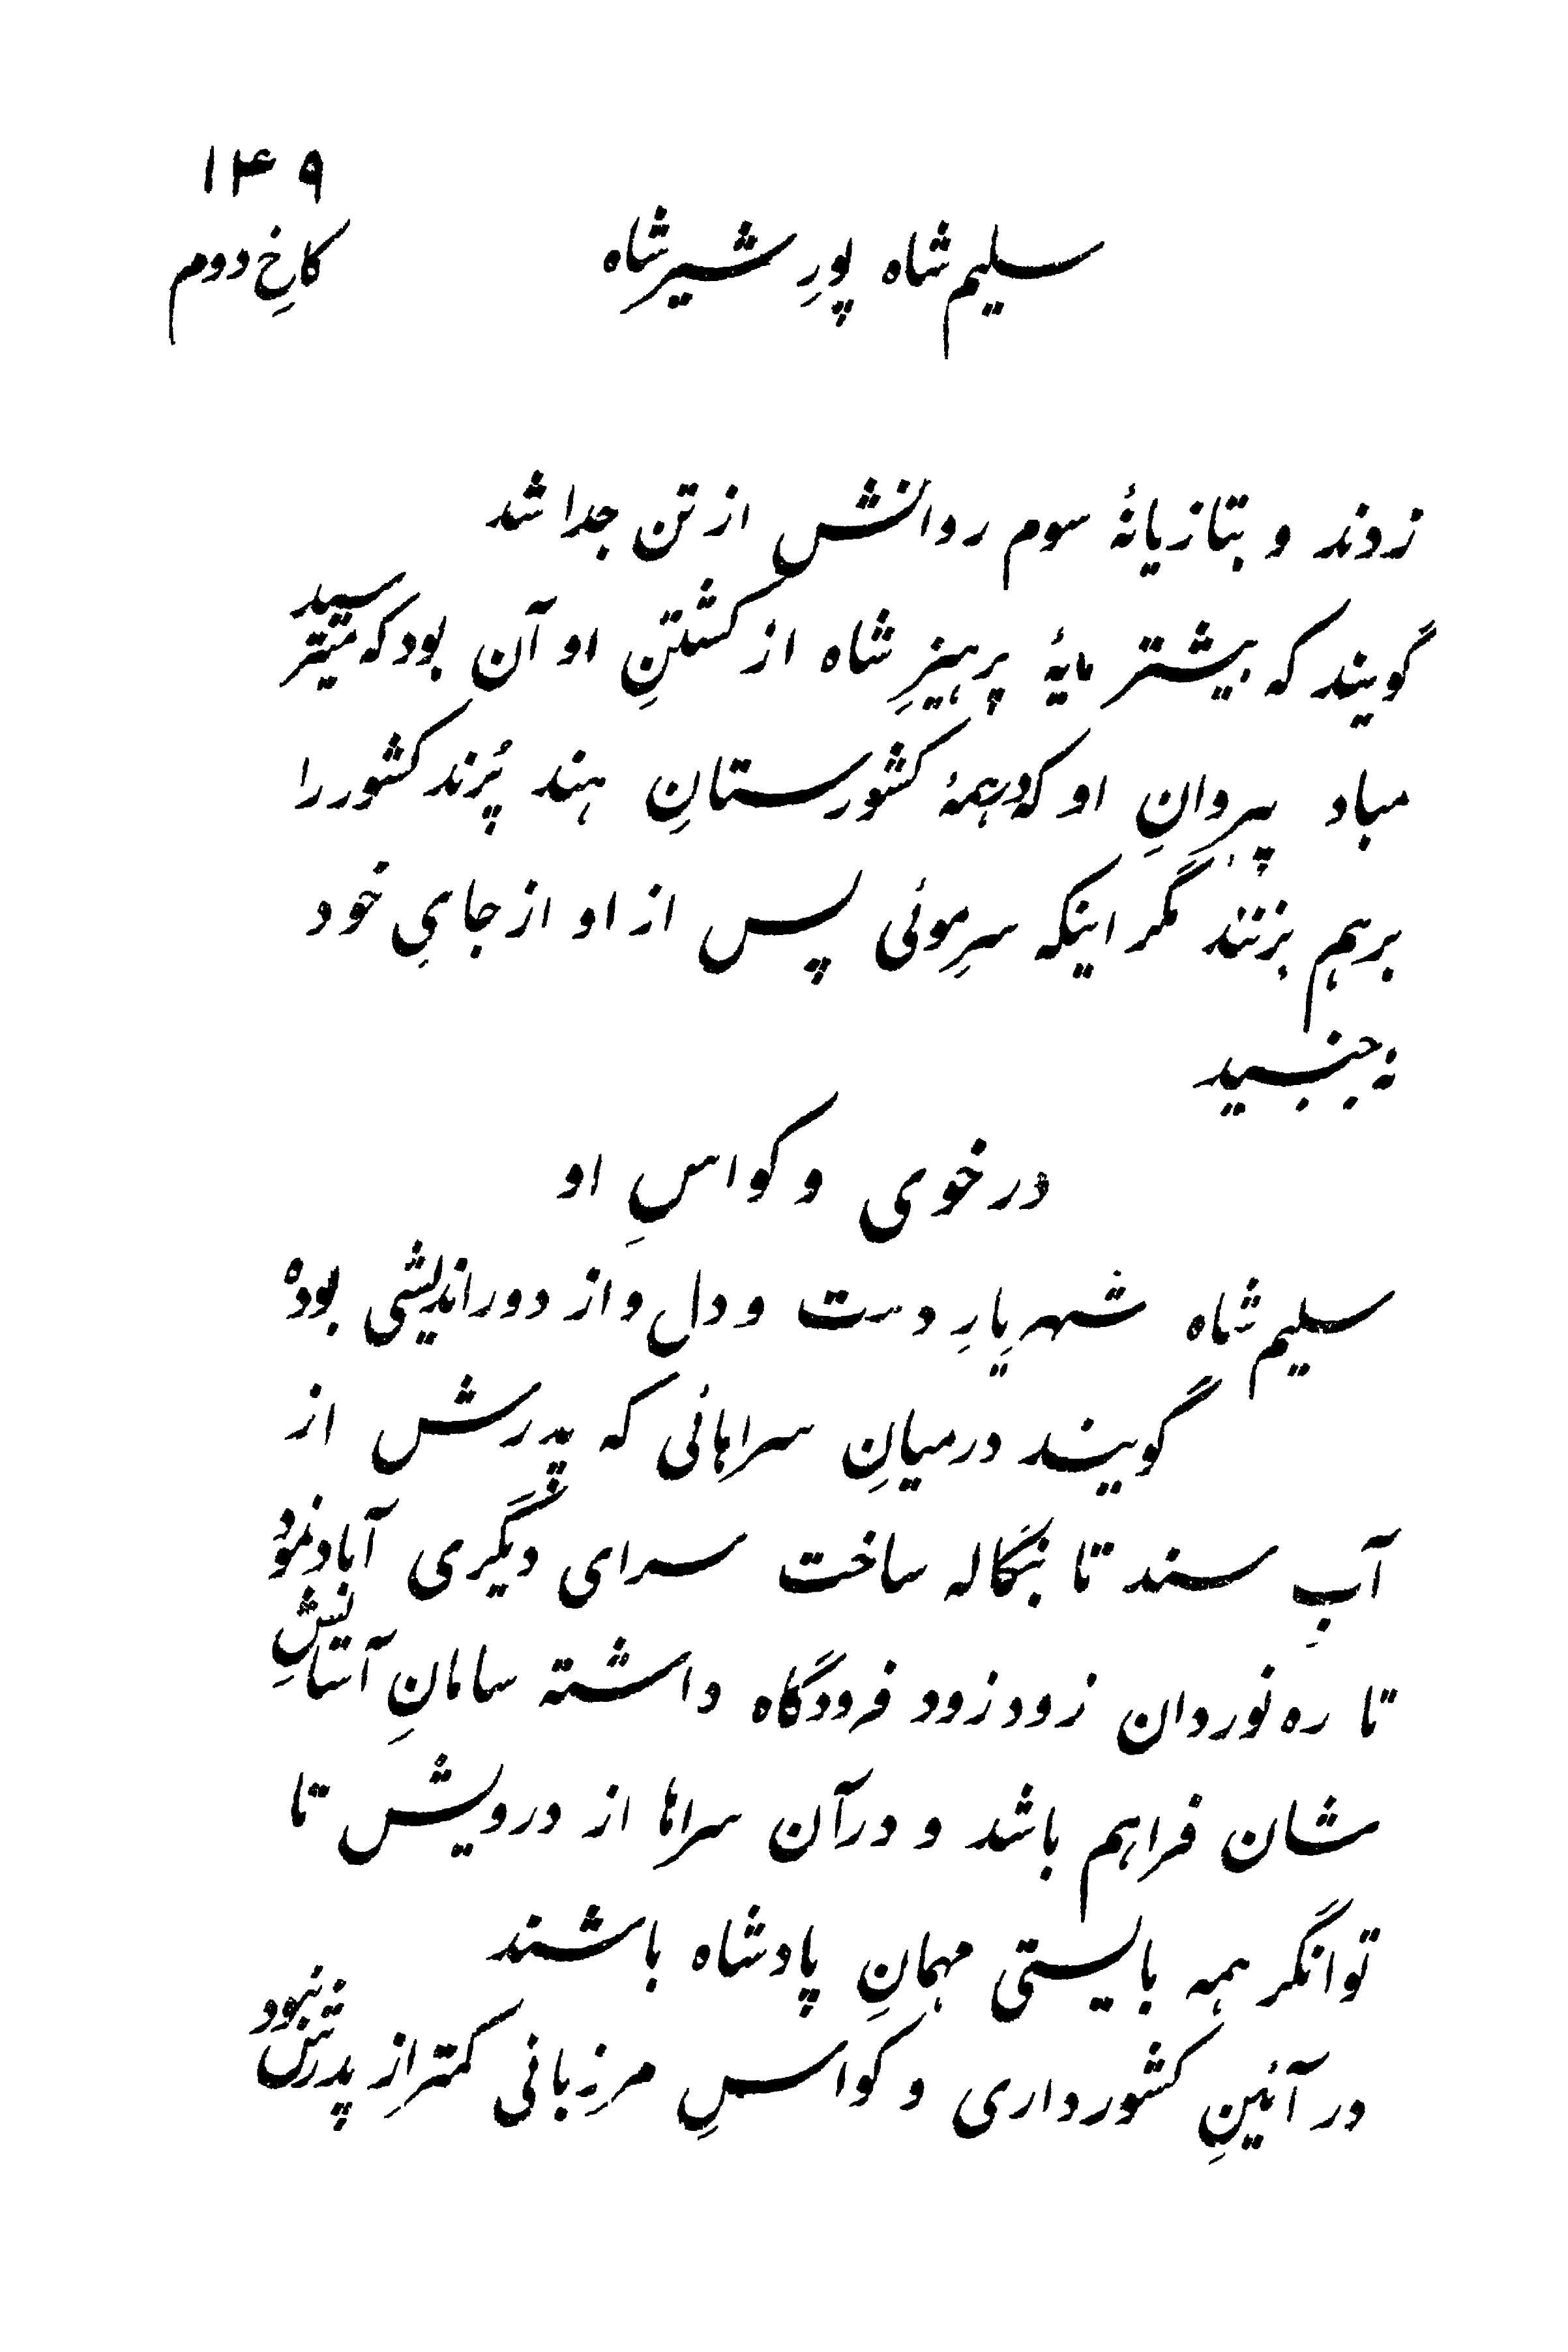 ۱۴۹
سلیم شاه پورِ شیر شاه
کاخِ دوم
زدند و بتازیانهٔ سوم روانش از تن جدا شد
گویند که بیشتر مایهٔ پرهیزِ شاه از کشتنِ او آن بود که میترسید
مباد پیروانِ او که در همهٔ کشورستانِ هند پُرند کشور را
برهم بزنند مگر اینکه سرِ موئی پس از او از جایِ خود
نه جنبسید
در خوی و کواسِ او
سلیم شاه شهریارِ دست و دل واز دوراندیشی بوده
گویند درمیانِ سراهائی که پدرش از
آبِ سند تا بنگاله ساخت سرای دیگری آباد نمود
تا ره نوردان زود زود فرودگاه داشته سامانِ آسانشِ
شان فراهم باشد و درآن سراها از درویش تا
توانگر همه بایستی مهمانِ پادشاه باشند
در آئینِ کشورداری و کواسِ مرزبانی کمتر از پدرش نبود